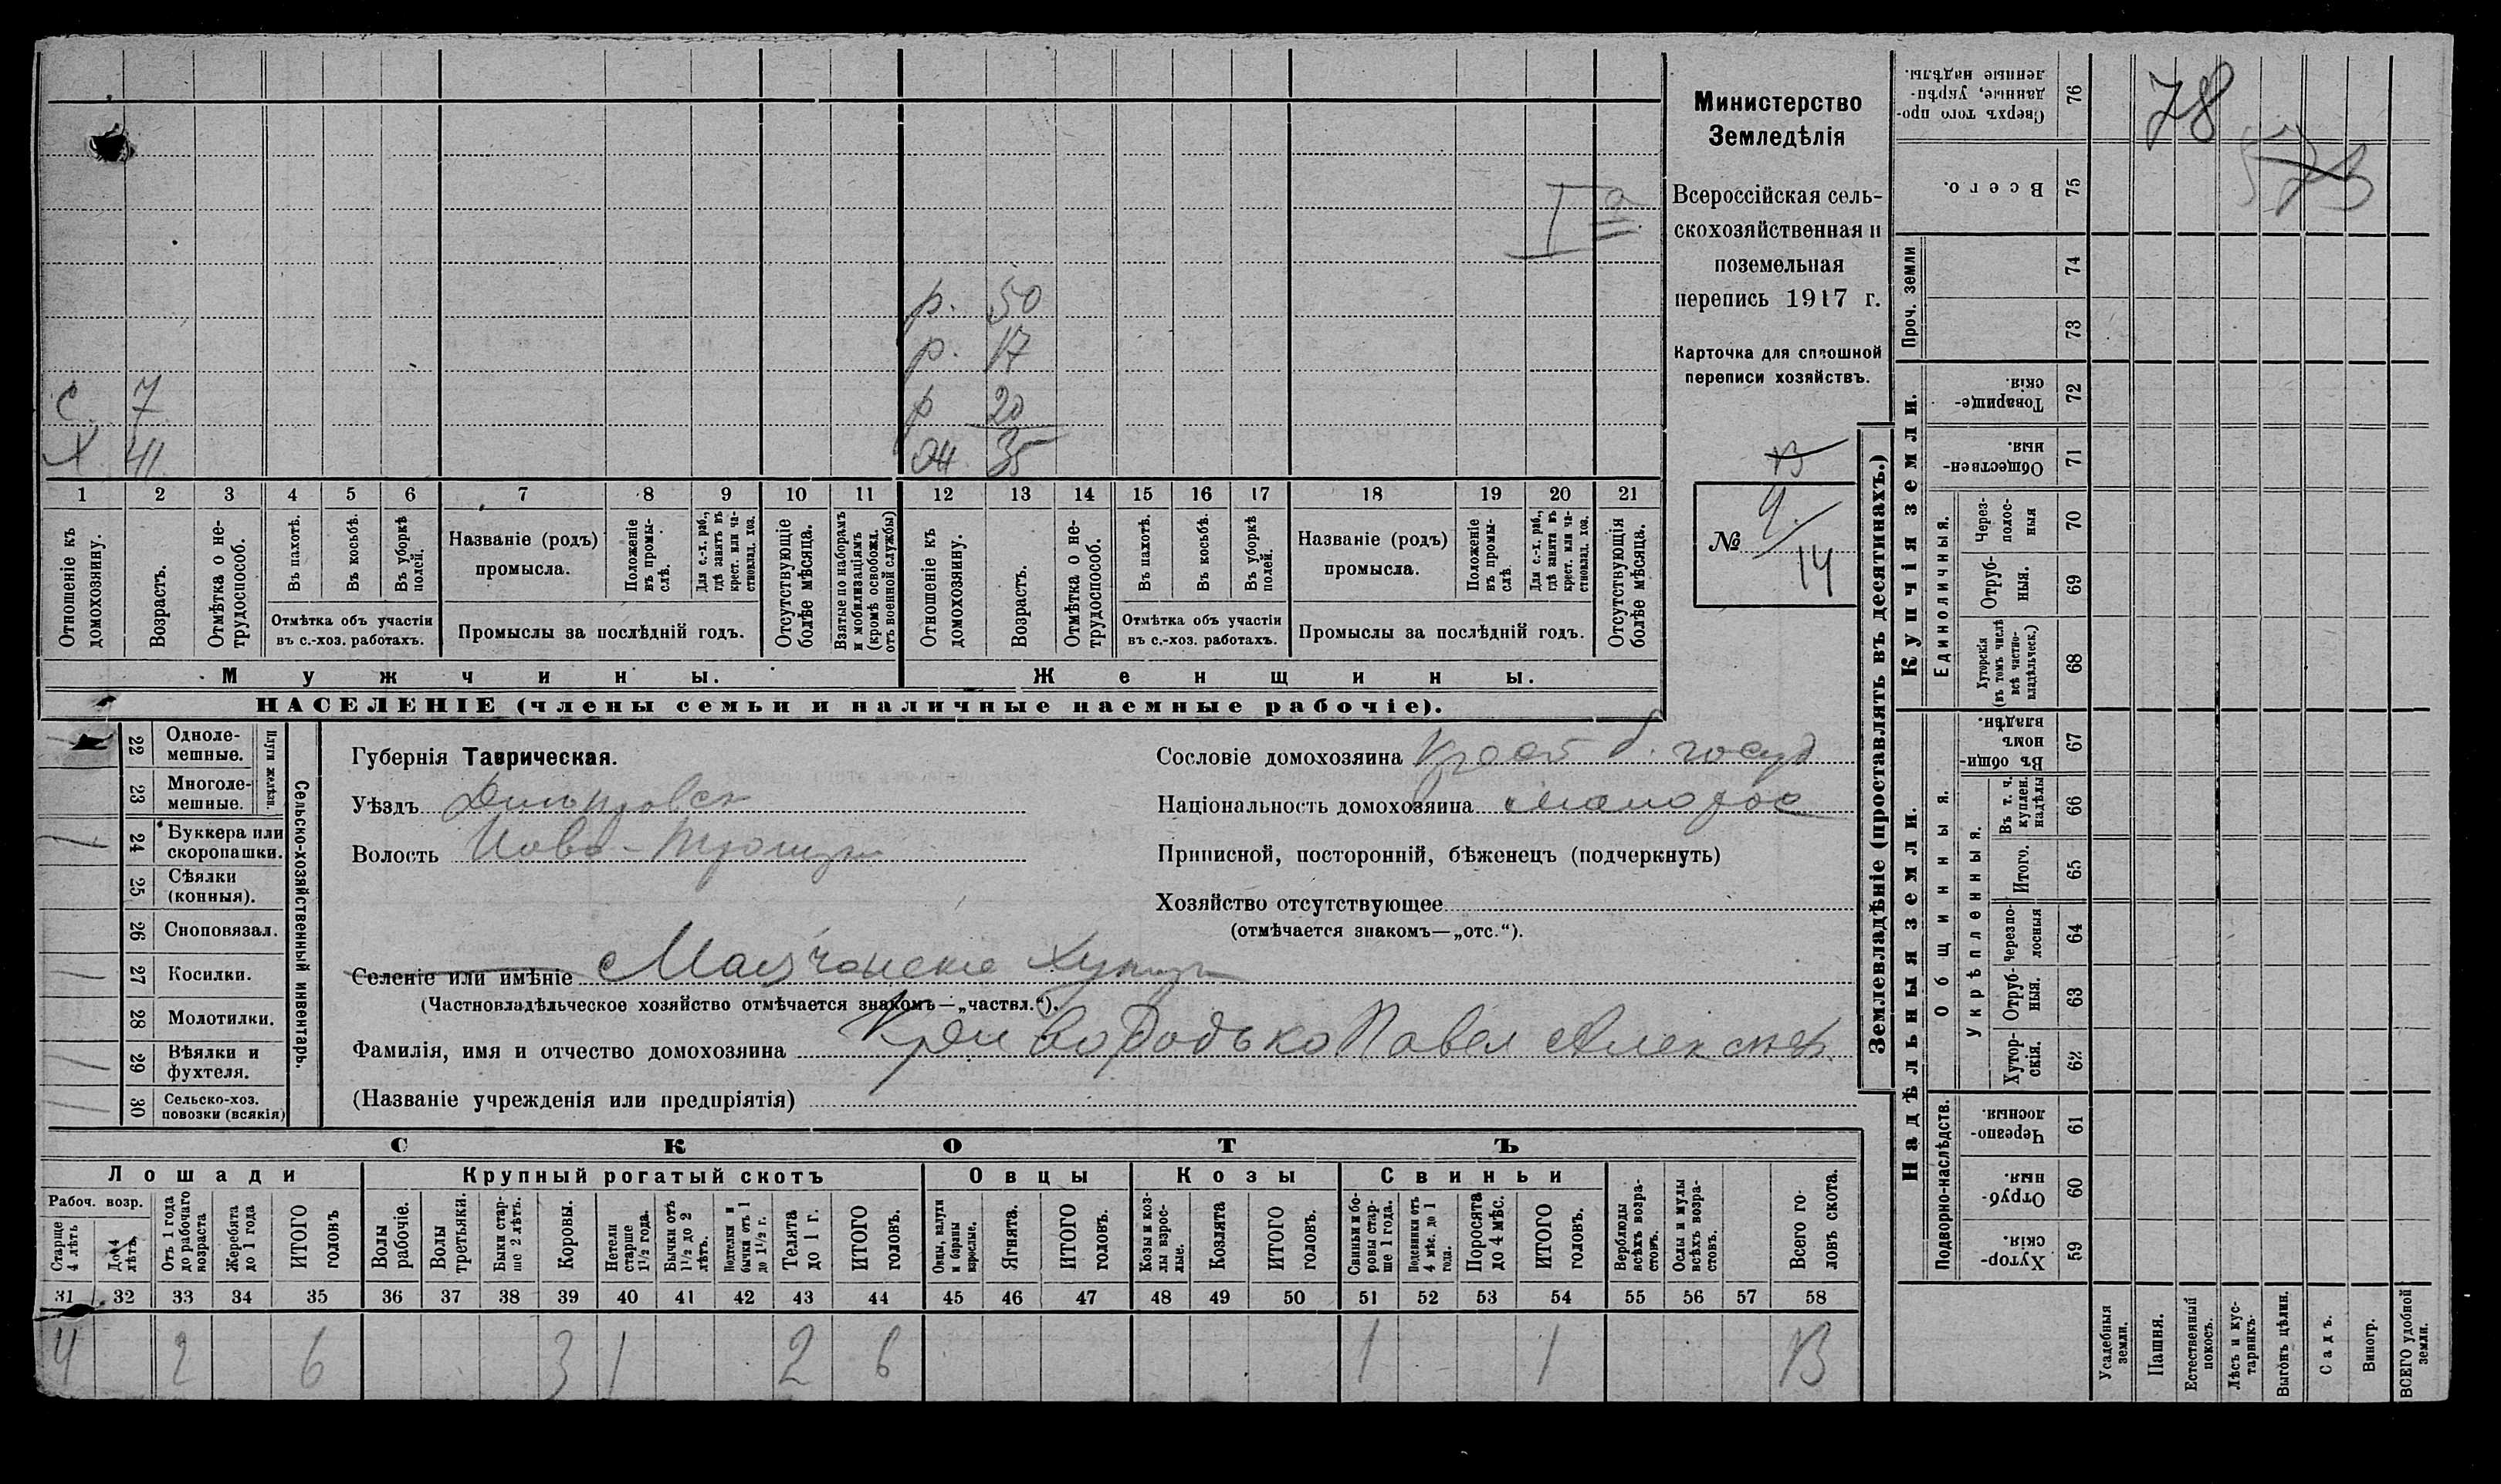 р. 50
р. 17
с. 7
р 20
Х 41
04 35
1 2 3 4 5 6 7 8 9 10 11 12 13 14 15 16 17 18 19 20 21
Отношеніе къ домохозяину.
Возрастъ.
Отмѣтка о не-
трудоспособ.
Въ пахотѣ.
Въ косьбѣ.
Въ уборкѣ
полей.
Отмѣтка объ участіи
въ с.-хоз. работахъ.
Названіе (родъ)
промысла.
Положеніе
въ промы-
слѣ.
Для с.-х. раб.,
гдѣ занятъ въ
крест. или ча-
стновлад. хоз.
Промыслы за послѣдній годъ.
Отсутствующіе
болѣе мѣсяца.
Взятые по наборамъ
и мобилизаціямъ
(кромѣ освобожд.
отъ военной службы)
Отношеніе къ
домохозяину.
Возрастъ.
Отмѣтка о не-
трудоспособ.
Въ пахотѣ.
Въ косьбѣ.
Въ уборкѣ
полей.
Отмѣтка объ участіи
въ с.-хоз. работахъ.
Названіе (родъ)
промысла.
Положеніе
въ промы-
слѣ.
Для с.-х. раб.,
гдѣ занята въ
крест. или ча-
стновлад. хоз.
Промыслы за послѣдній годъ.
Отсутствующія
болѣе мѣсяца.
Мужчины.
Женщины.
НАСЕЛЕНІЕ (члены семьи и наличные наемные рабочіе).
Министерство
Земледѣлія
Всероссійская сель-
скохозяйственная и
поземельная
перепись 1917 г.
Карточка для сплошной
переписи хозяйствъ.
Iа
№ 9/14
22 Одноле-
мешные.
23 Многоле-
мешные.
Плуги желѣзн.
24 Буккера или
скоропашки.
25 Сѣялки
(конныя).
26 Сноповязал.
27 Косилки.
28 Молотилки.
29 Вѣялки и
фухтеля.
30 Сельско-хоз.
повозки (всякія)
Сельско-хозяйственный инвентарь.
Губернія Таврическая.
Уѣздъ Днѣпровск
Волость Ново-Троицк
Селеніе или имѣніе Маячанскіе Хутор
(Частновладѣльческое хозяйство отмѣчается знакомъ—„частвл.“).
Фамилія, имя и отчество домохозяина Павел Алексѣев.
(Названіе учрежденія или предпріятія)
Сословіе домохозяина Крест б. госуд
Національность домохозяина малорос
Приписной, посторонній, бѣженецъ (подчеркнуть)
Хозяйство отсутствующее
(отмѣчается знакомъ—„отс.“).
СКОТЪ
Лошади
Крупный рогатый скотъ
Овцы
Козы
Свиньи
Рабоч. возр.
Старше
4 лѣтъ
До 4
лѣтъ.
Отъ 1 года
до рабочаго
возраста
Жеребята
до 1 года
ИТОГО
головъ
Волы
рабочіе.
Волы
третьяки.
Быки стар-
ше 2 лѣтъ.
Коровы.
Нетели
старше
1½ года.
Бычки отъ
1½ до 2
лѣтъ.
Подтелки и
бычки отъ 1
до 1½ г.
Телята
до 1 г.
ИТОГО
головъ.
Овцы, валухи
и бараны
взрослые.
Ягнята.
ИТОГО
головъ.
Козы и коз-
лы взрос-
лые.
Козлята
ИТОГО
головъ.
Свиньи и бо-
ровы стар-
ше 1 года.
Подсвинки отъ
4 мѣс. до 1
года.
Поросята
до 4 мѣс.
ИТОГО
головъ.
Верблюды
всѣхъ возра-
стовъ.
Ослы и мулы
всѣхъ возра-
стовъ.
Всего го-
ловъ скота.
31 32 33 34 35 36 37 38 39 40 41 42 43 44 45 46 47 48 49 50 51 52 53 54 55 56 57 58
4 2 6 3 1 2 6 1 1 13
Землевладѣніе (проставлять въ десятинахъ.)
Купчія земли.
Надѣльныя земли.
Сверхъ того про-
данные, укрѣп-
ленные надѣлы.
76
78
Всего.
75
Проч. земли
74
73
Товарище-
скія.
72
Обществен-
ныя.
71
Единоличныя.
Через-
полос-
ныя
70
Отруб-
ныя.
69
Хуторскія
(въ томъ числѣ
всѣ частно-
владѣльческ.)
68
Общинныя.
Въ общи-
номъ
владѣн.
67
Укрѣпленныя.
Въ т. ч.
куплен.
надѣлы
66
Итого.
65
Черезпо-
лосныя
64
Отруб-
ныя.
63
Хутор-
скія.
62
Подворно-наслѣдств.
Черезпо-
лосныя.
61
Отруб-
ныя.
60
Хутор-
скія.
59
Усадебныя
земли.
Пашня.
Естественный
покосъ.
Лѣсъ и кус-
тарникъ.
Выгонъ цѣлин.
Садъ.
Виногр.
ВСЕГО удобной
земли.